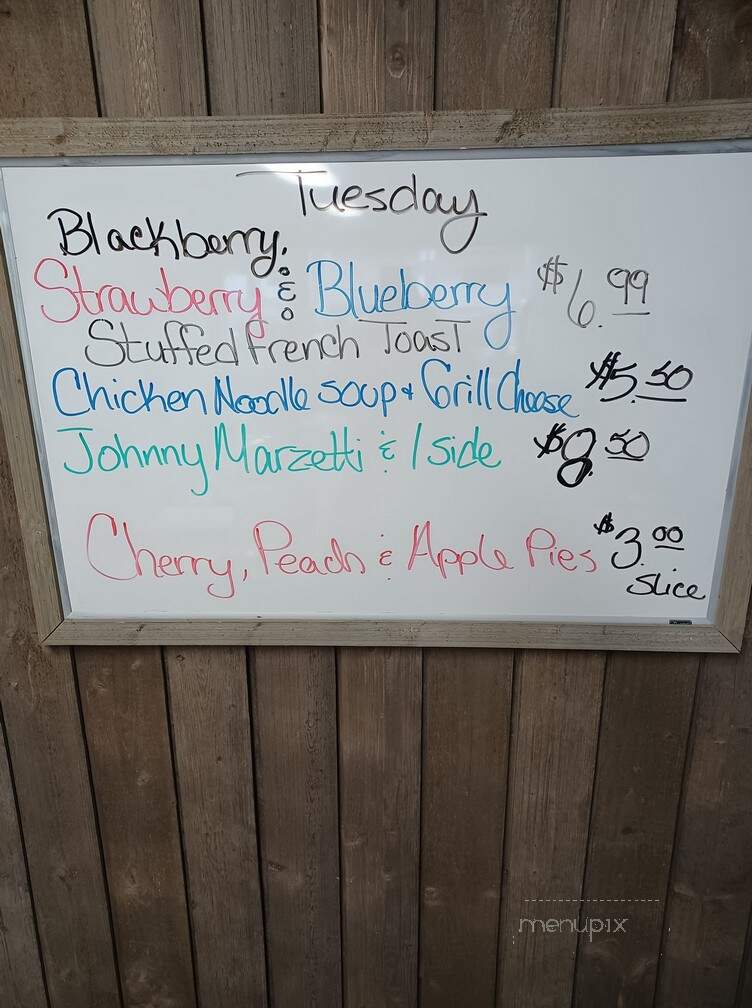 Tuesday
Blackberry,
Strawberry & Blueberry $6.99
Stuffed French Toast
Chicken Noodle soup & Grill Cheese $5.50
Johnny Marzetti & 1 side $8.50
Cherry, Peach & Apple Pies $3.00
slice
menupix